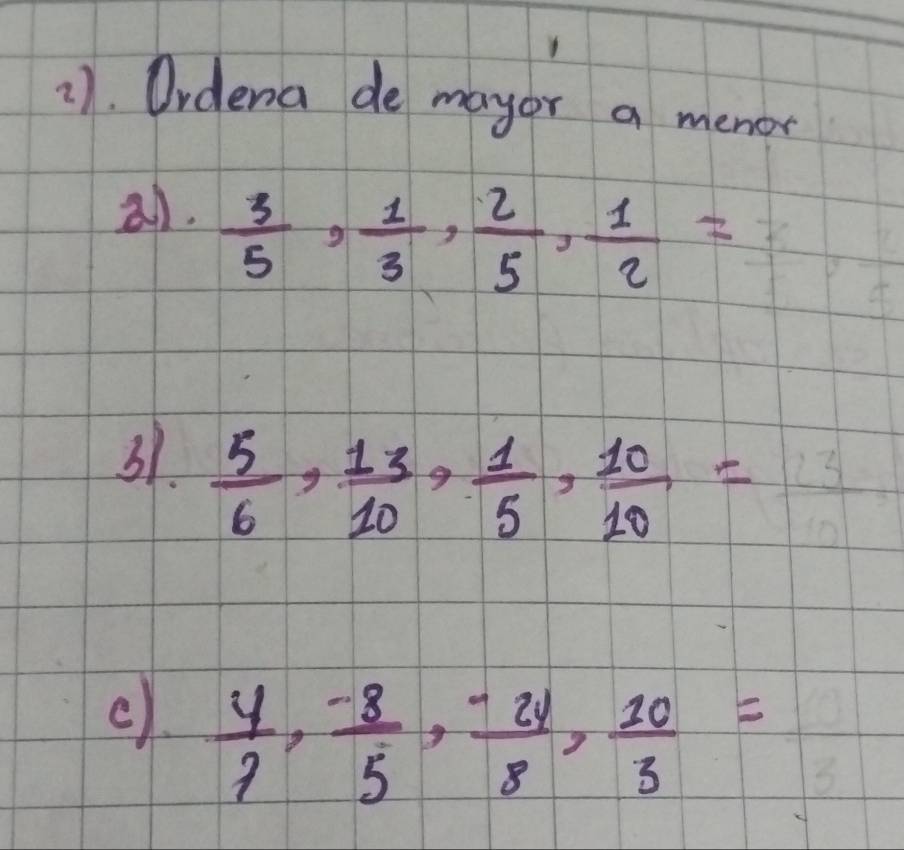 2). Ordena de mayor a menor
a). 3/5, 1/3, 2/5, 1/2 =
b). 5/6, 13/10, 1/5, 10/10 =
c) 4/7, -8/5, -24/8, 10/3 =